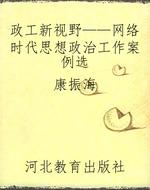 政工新视野——网络
时代思想政治工作案
例选
康振海
河北教育出版社